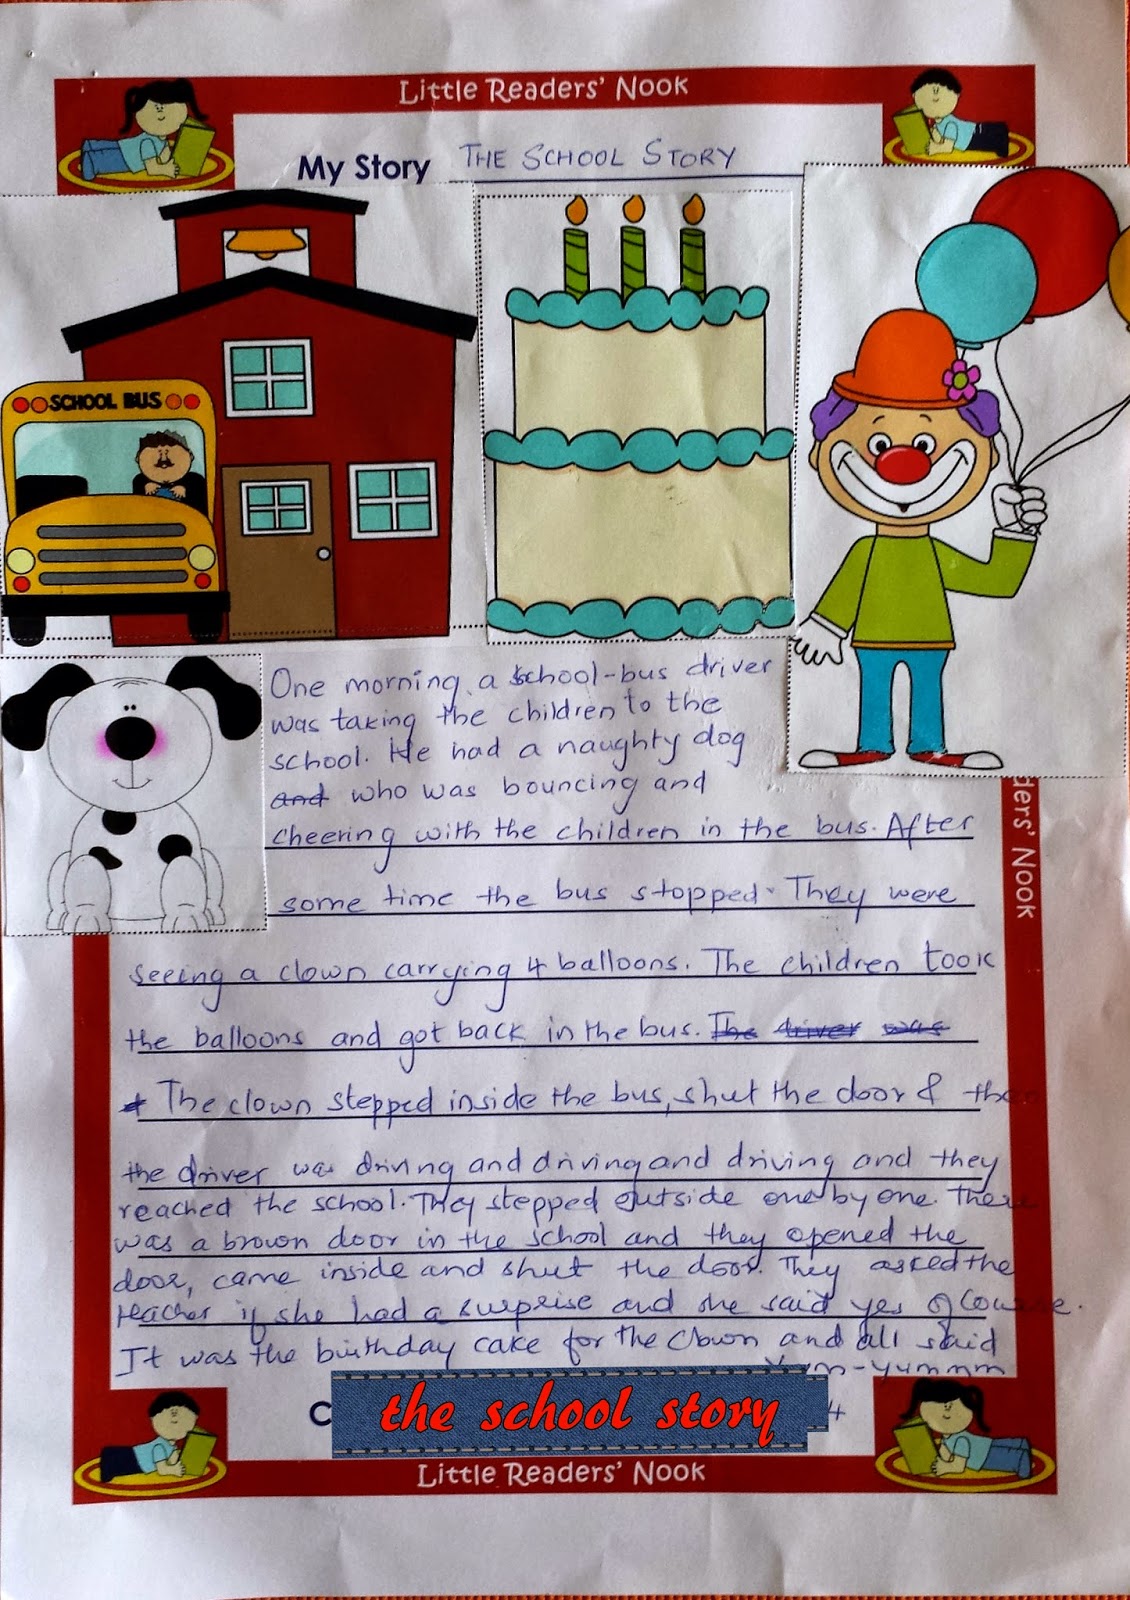 Little Readers' Nook
My Story THE SCHOOL STORY
SCHOOL BUS
One morning a school-bus driver
was taking the children to the
school. He had a naughty dog
and who was bouncing and
cheering with the children in the bus. After
some time the bus stopped. They were
seeing a clown carrying 4 balloons. The children took
the balloons and got back in the bus. The driver was
The clown stepped inside the bus, shut the door & then
the driver was driving and driving and driving and they
reached the school. They stepped outside one by one. There
was a brown door in the school and they opened the
door, came inside and shut the door. They asked the
teacher if she had a surprise and she said yes of course.
It was the birthday cake for the clown and all said
Yum-yummm
the school story
Little Readers' Nook
ders' Nook